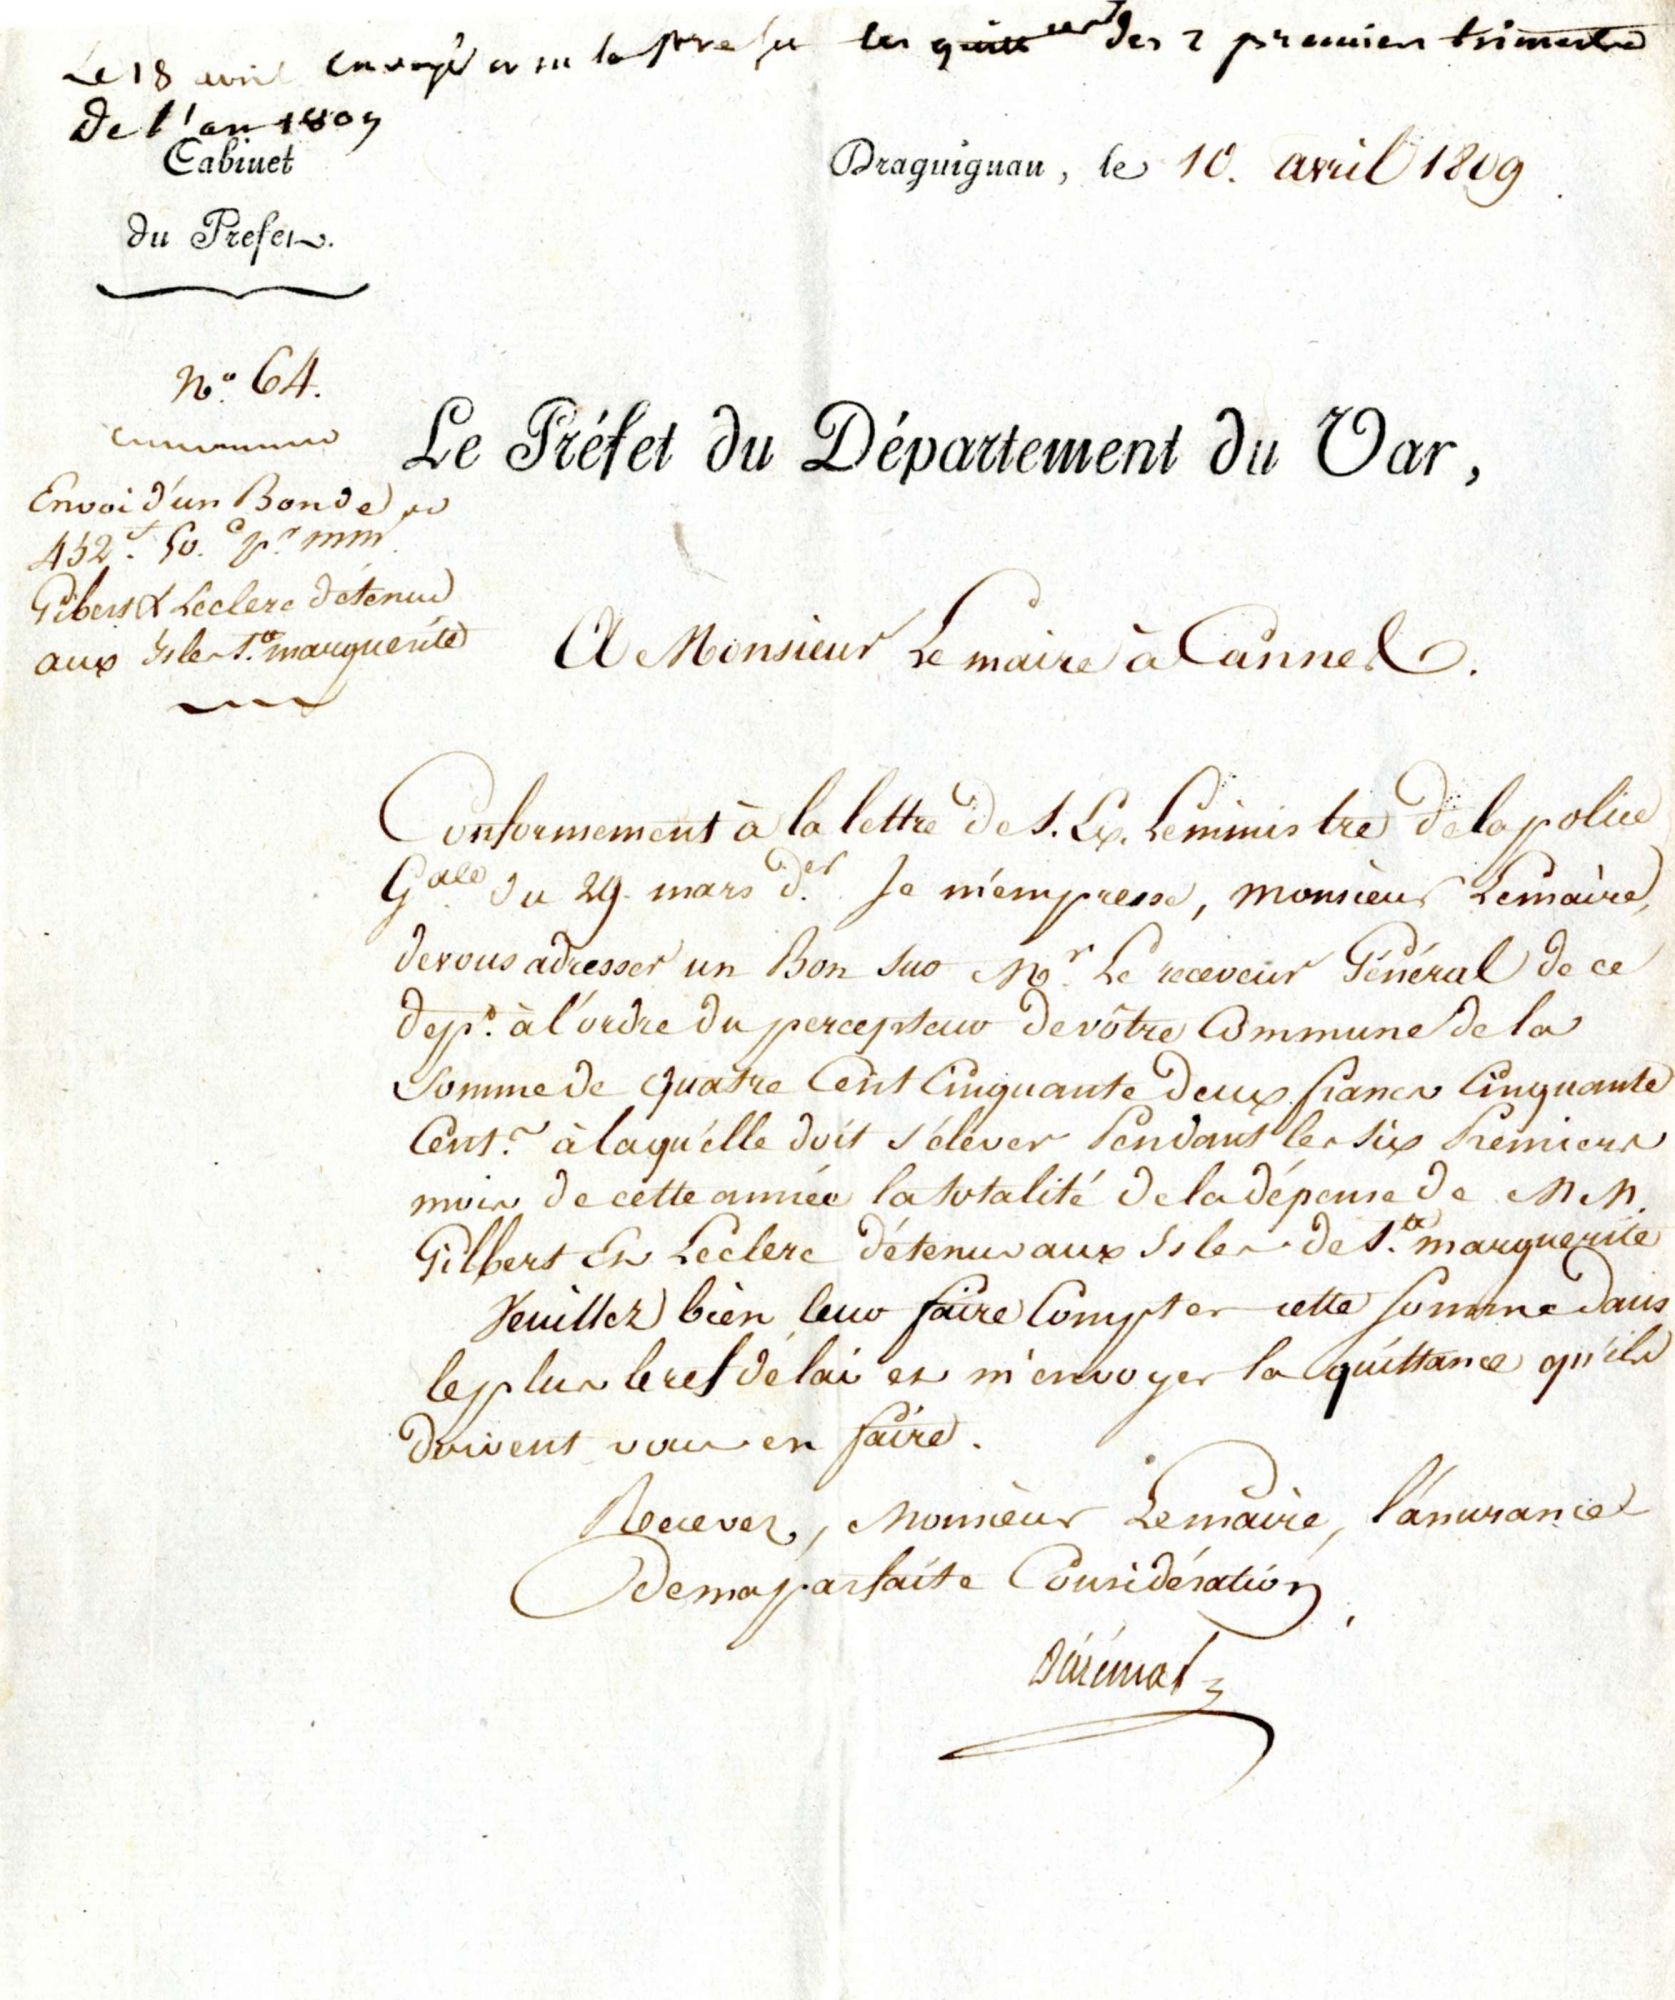 Le 18 avril envoyé à m le préfet les quittces des 2 premiers trimestre
De l'an 1809
Cabinet
du Préfet.
Draguignan, le 10. avril 1809
N.° 64.
Envoi d'un Bon de
452.f 50.c p.r mm
Gilbert & Leclerc détenus
aux Isles S.te marguerite
Le Préfet du Département du Var,
A Monsieur Le maire à Cannes.
Conformement à la lettre de S. Ex. Le ministre de la police
G.ale du 29. mars d.er Je m'empresse, Monsieur Lemaire,
de vous adresser un Bon sur M.r Le receveur Général de ce
dep.t à l'ordre du percepteur de vôtre Commune de la
Somme de quatre Cent Cinquante deux francs Cinquante
Cent.s à laquélle doit s'élever Pendant les six Premiers
mois de cette année la totalité de la dépense de M M.
Gilbert Et Leclerc détenus aux Isles de S.te marguerite
Veuillez bien leur faire Compter cette Somme dans
le plus bref délai et m'envoyer la quittance qu'ils
doivent vous en faire.
Recevez, Monsieur Lemaire, l'assurance
de ma parfaite Considération,